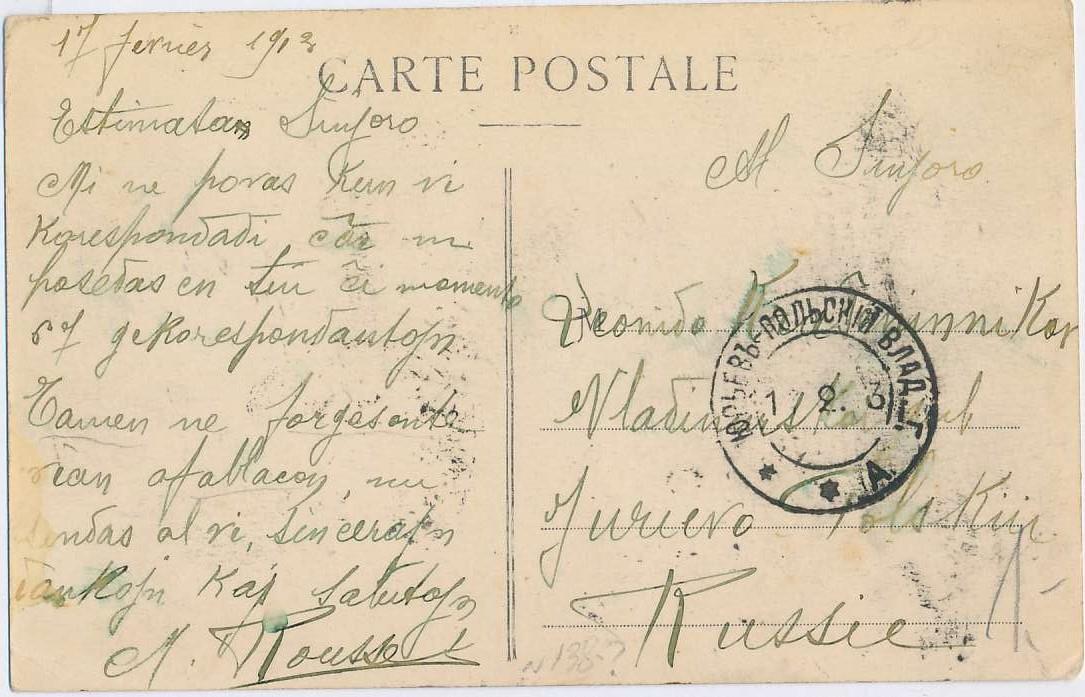 17 fevrier 1913
CARTE POSTALE
Estimatan Sinjoro
Mi ne povas kun vi
korespondadi, ĉar mi
posedas en tiu ĉi momento
67 gekorespondantojn
Tamen ne forgesante
vian afablacon, mi
sendas al vi, sincerajn
dankojn kaj salutojn
M. Rousse
Al Sinjoro
Leonido K
Vladimirska gub
Jurievo Polskij
Russie
ЮРЬЕВЪ-ПОЛЬСКІЙ ВЛАД. Г.
А